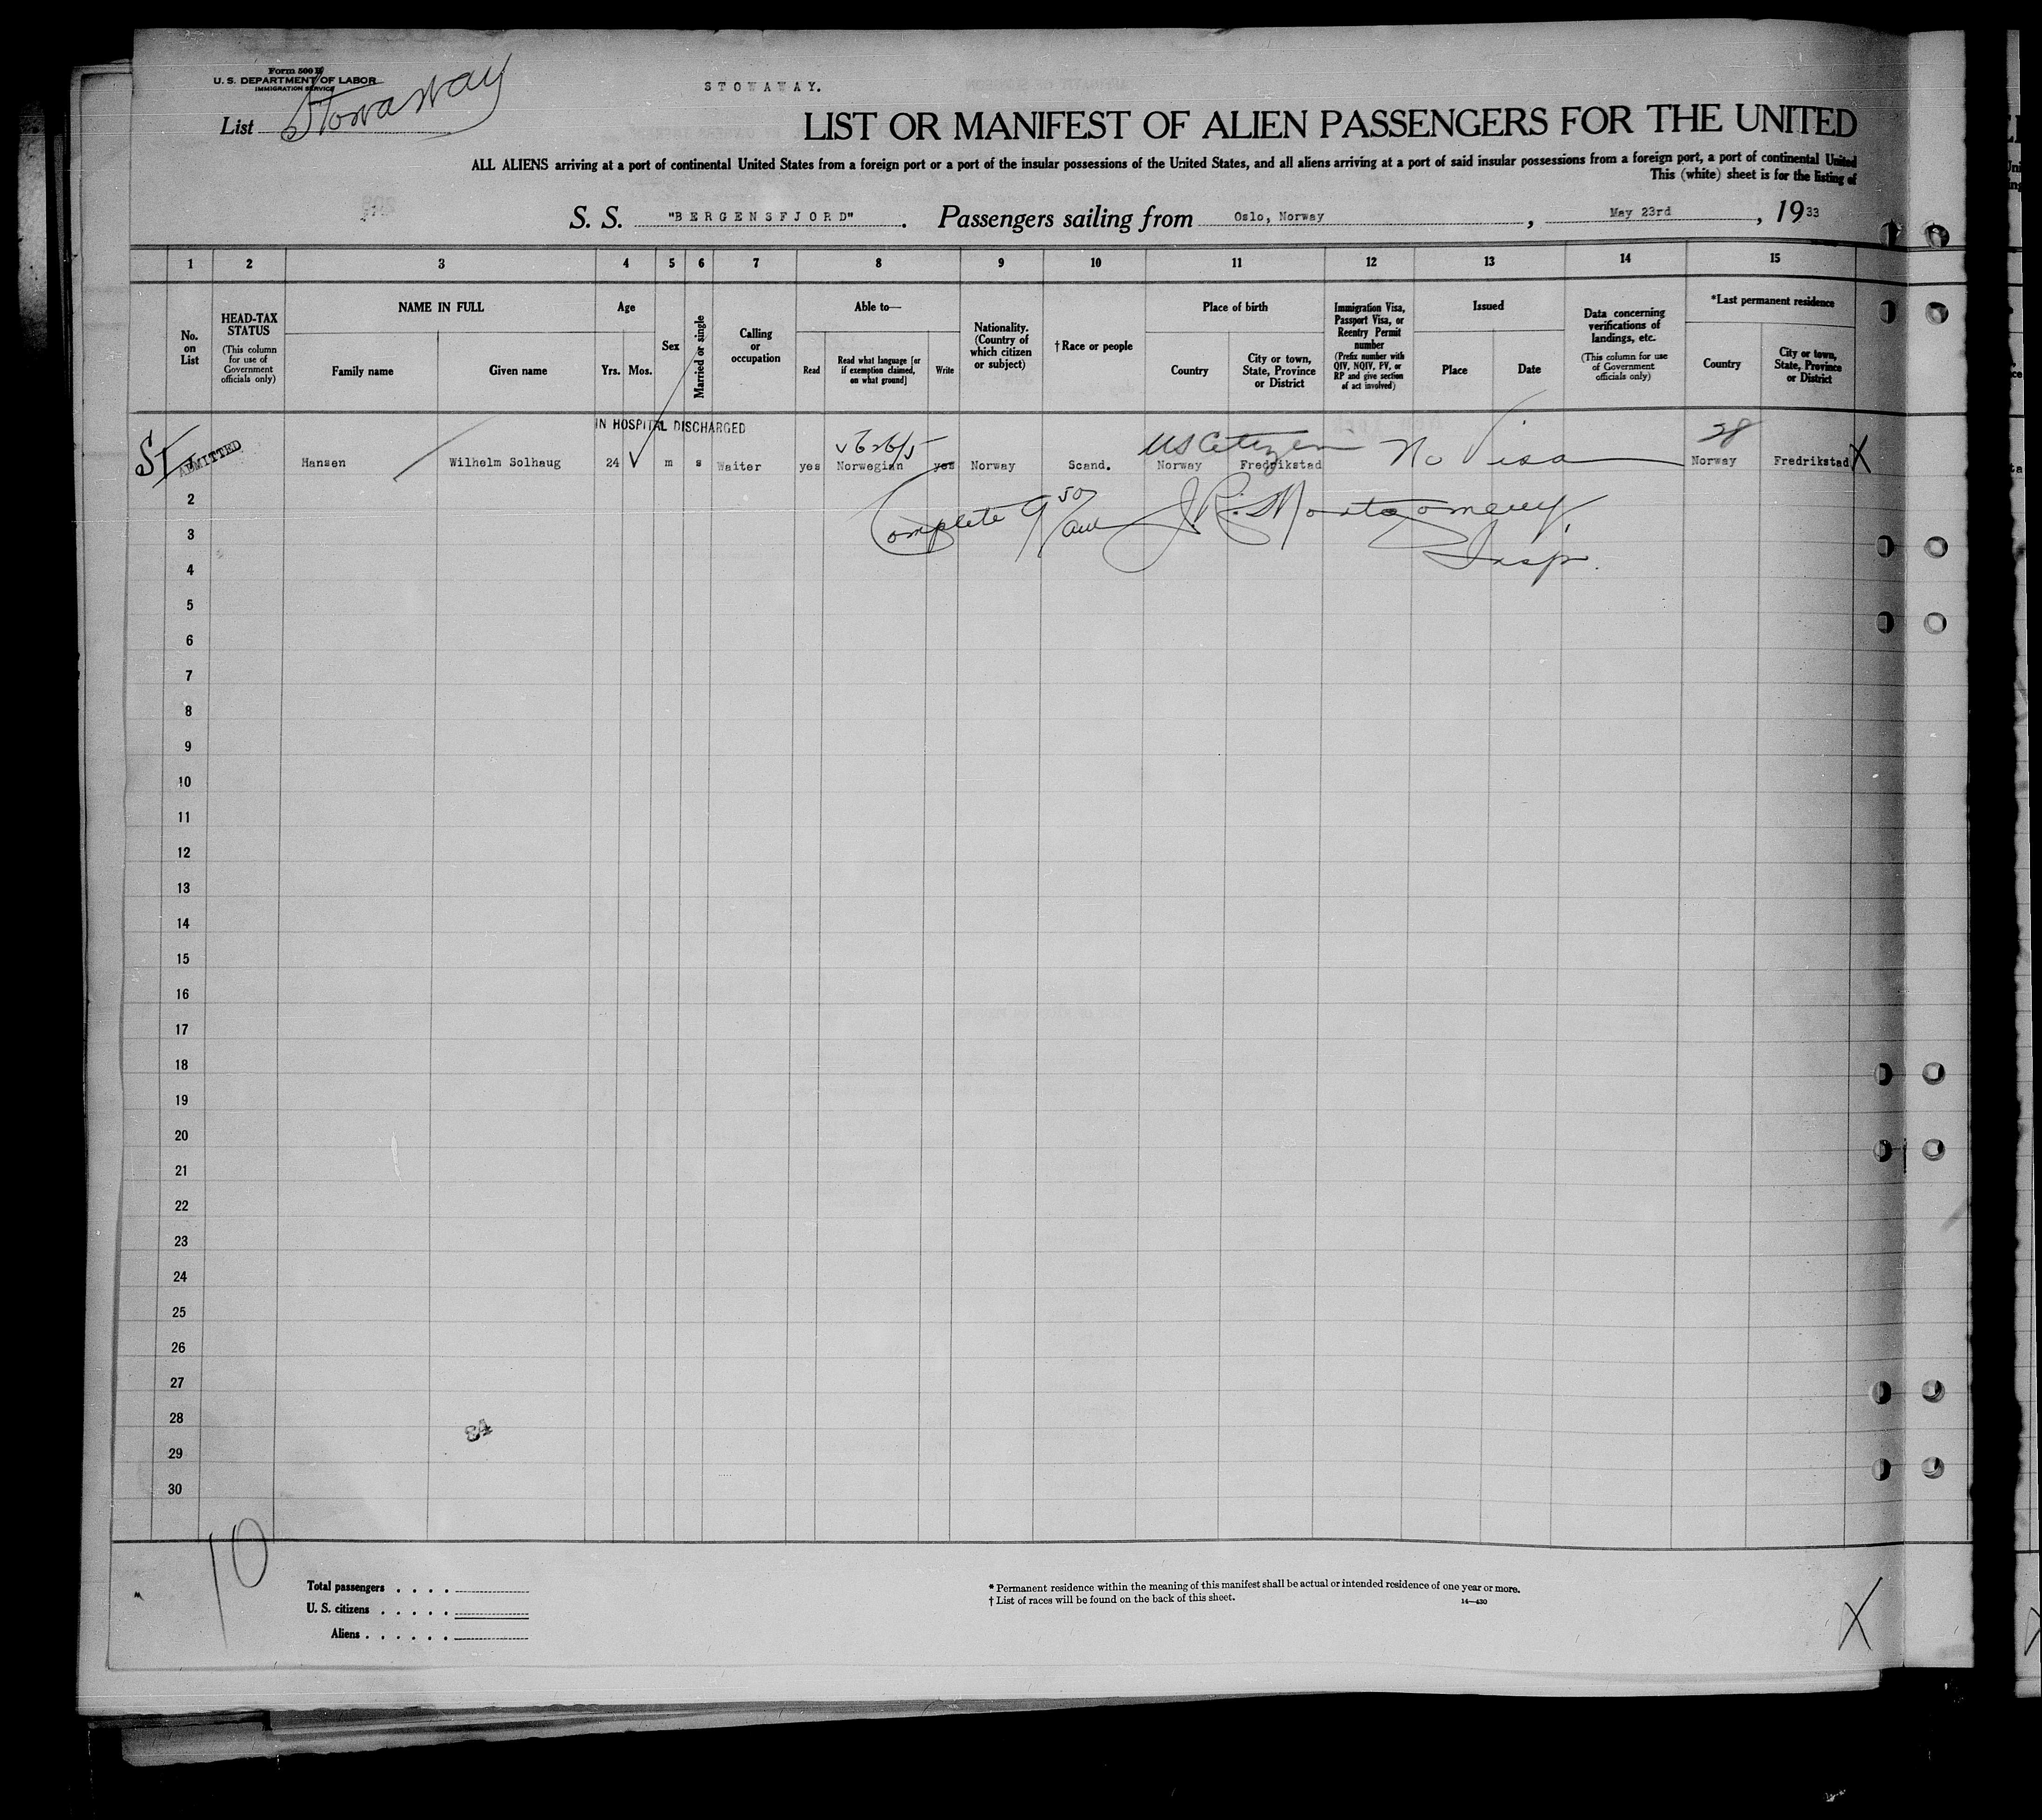 Form 500 B
U. S. DEPARTMENT OF LABOR
IMMIGRATION SERVICE
STOWAWAY.
List Stowaway
LIST OR MANIFEST OF ALIEN PASSENGERS FOR THE UNITED
ALL ALIENS arriving at a port of continental United States from a foreign port or a port of the insular possessions of the United States, and all aliens arriving at a port of said insular possessions from a foreign port, a port of continental United
This (white) sheet is for the listing of
S. S. "BERGENSFJORD". Passengers sailing from Oslo, Norway, May 23rd, 1933
1 2 3 4 5 6 7 8 9 10 11 12 13 14 15
No. on List
HEAD-TAX STATUS
(This column for use of Government officials only)
NAME IN FULL
Family name
Given name
Age
Yrs. Mos.
Sex
Married or single
Calling or occupation
Able to—
Read
Read what language [or if exemption claimed, on what ground]
Write
Nationality. (Country of which citizen or subject)
†Race or people
Place of birth
Country
City or town, State, Province or District
Immigration Visa, Passport Visa, or Reentry Permit number
(Prefix number with QIV, NQIV, PV, or RP and give section of act involved)
Issued
Place
Date
Data concerning verifications of landings, etc.
(This column for use of Government officials only)
*Last permanent residence
Country
City or town, State, Province or District
IN HOSPITAL DISCHARGED
US Citizen No Visa 28
ADMITTED Hansen Wilhelm Solhaug 24 m s Waiter yes Norwegian yes Norway Scand. Norway Fredrikstad Norway Fredrikstad X
Complete 9 50/am J. R. Montgomery
Insp.
2
3
4
5
6
7
8
9
10
11
12
13
14
15
16
17
18
19
20
21
22
23
24
25
26
27
28
29
30
10
Total passengers . . . .
U. S. citizens . . . . .
Aliens . . . . . .
* Permanent residence within the meaning of this manifest shall be actual or intended residence of one year or more.
† List of races will be found on the back of this sheet.
14—430
X